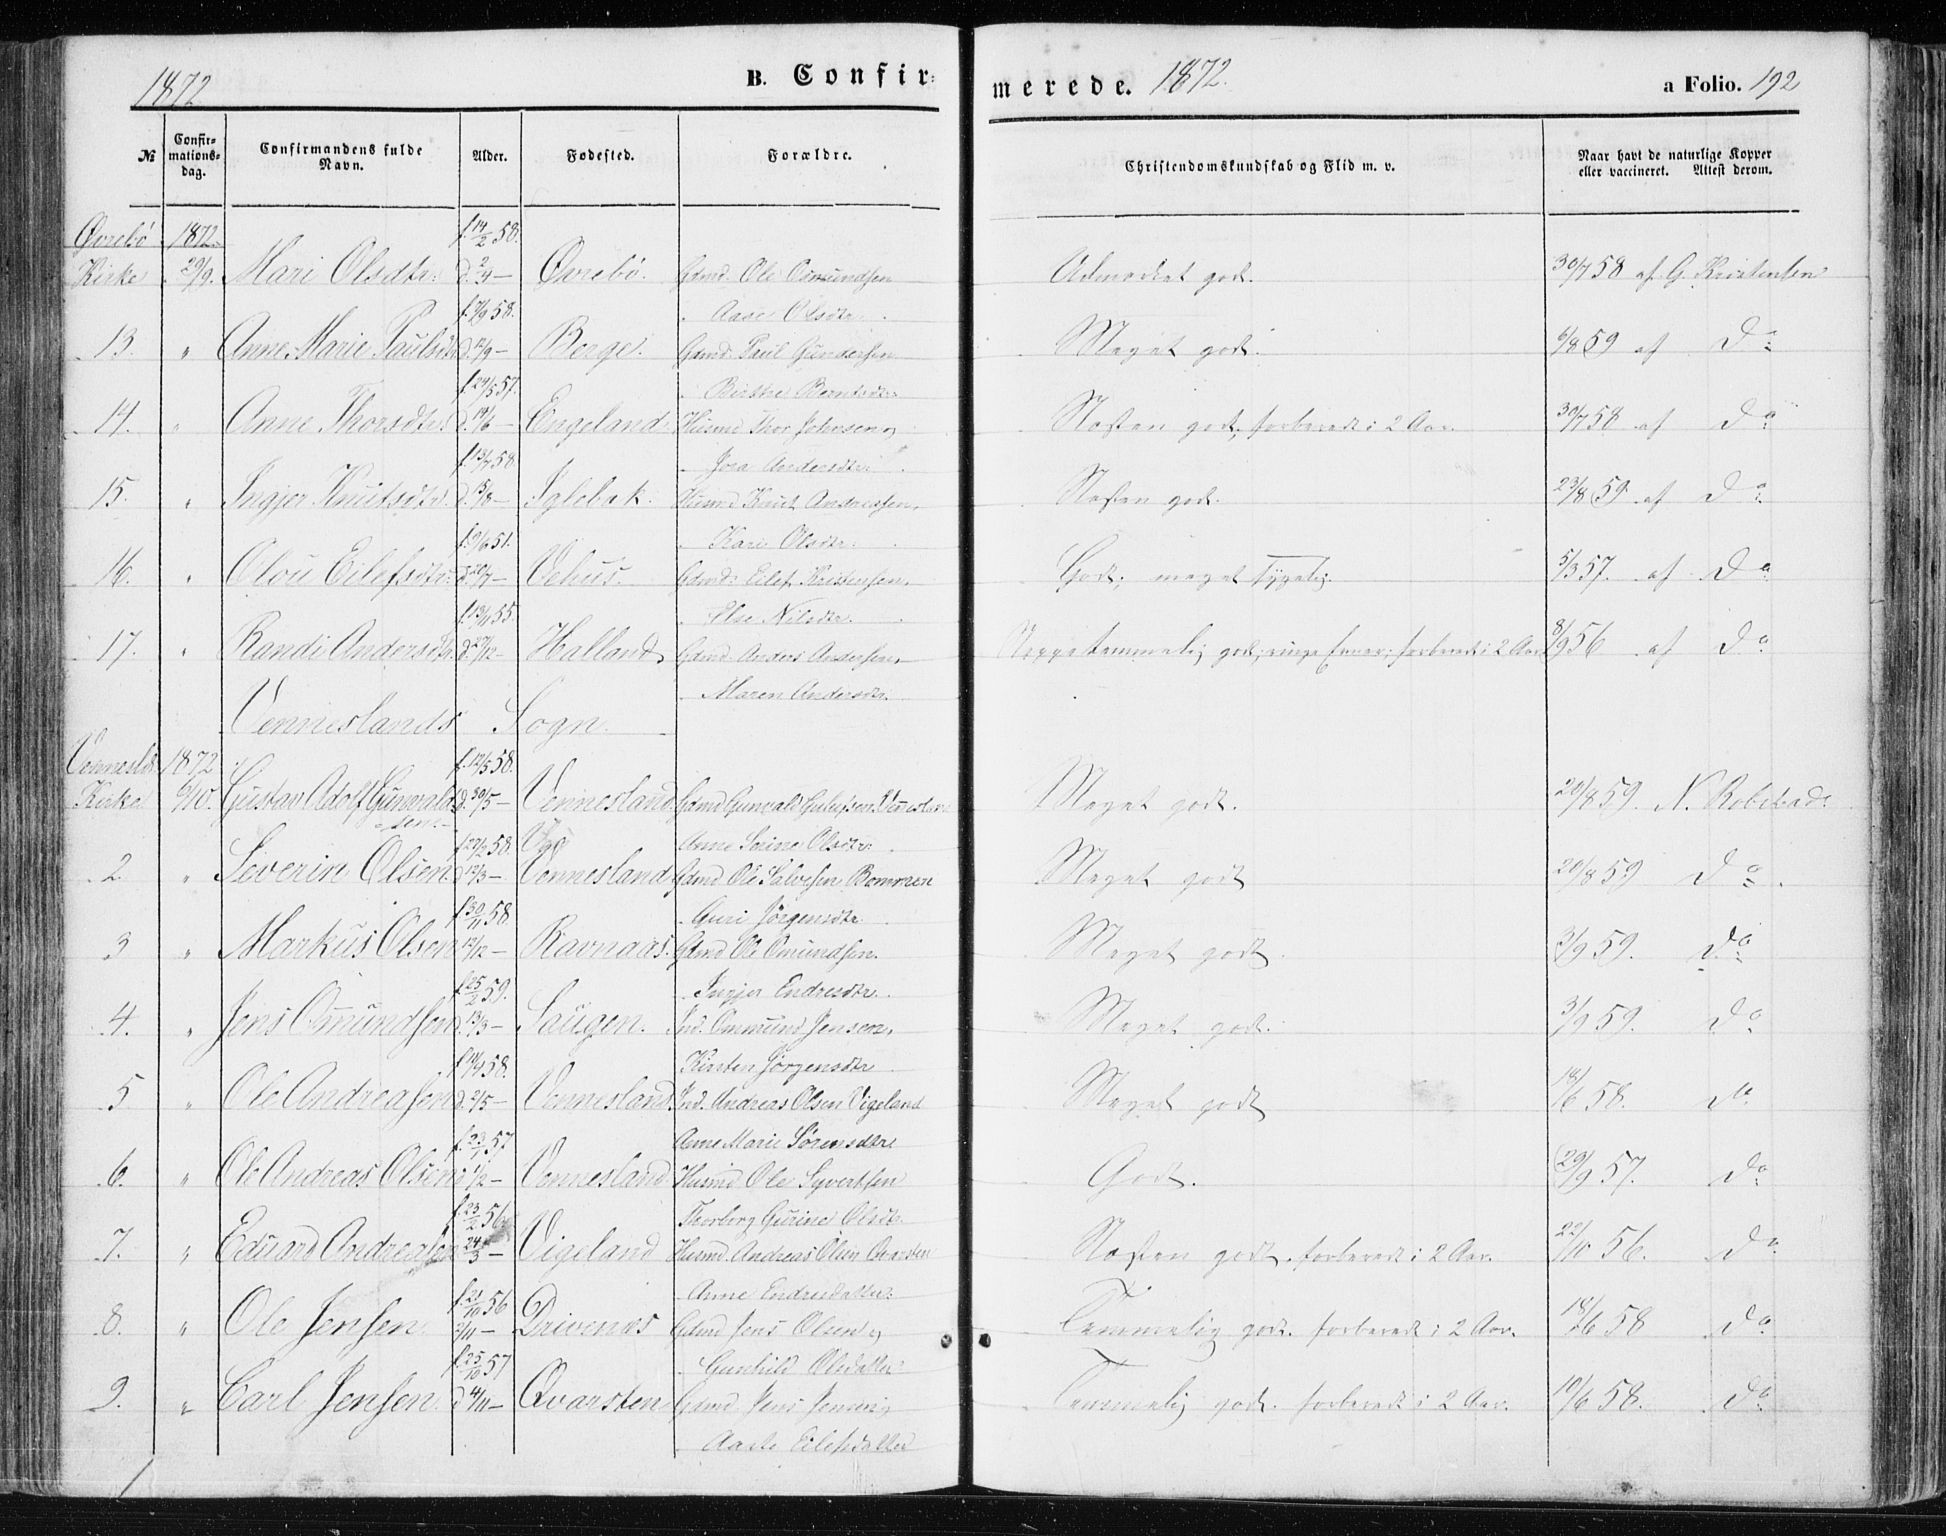 1872
B. Confirmerede. 1872.
a Folio. 192
№ Confirmations-dag. Confirmandens fulde Navn. Alder. Fødested. Forældre. Christendomskundskab og Flid m. v. Naar havt de naturlige Kopper eller vaccineret. Attest derom.
Øvrebö 1872. f. 14/2 58.
Kirke 29/9. Mari Olsdtr. d. 2/4 — Øvrebö. Gdmd. Ole Osmundsen Udmærket godt. 30/7 58 af G. Kristensen
f. 7/9 58. Aase Olsdtr.
13. " Anne Marie Paulsdtr. d. 12/9 — Berge. Gdmd. Paul Gundersen Meget godt. 6/8 59 af Do
f. 24/5 57. Birthe Berntsdtr.
14. " Anne Thorsdtr. d. 14/6 — Engeland. Husmd Thor Johnsen og Næsten godt, forberedt i 2 Aar. 30/7 58 af Do
f. 13/7 58. Jora Andersdtr.
15. " Ingjer Knutsdtr. d. 15/8 — Iglebæk. Husmd Knut Andreasen, Næsten godt. 23/8 59 af Do
f. 9/6 51. Kari Olsdtr.
16. " Olou Eilefsdtr. d. 20/7 — Vehus. Gdmd. Eilef Kristensen, Godt; meget sygelig. 5/3 57. af Do
f. 13/11 55. Else Nilsdtr.
17. " Randi Andersdtr. d. 27/12 — Halland. Gdmd. Anders Andersen, Neppe temmelig godt; ringe Evner; forberedt i 2 Aar. 8/9 56 af Do
Maren Andersdtr.
Venneslands Sogn.
Vennesl. 1872 f. 12/5 58.
Kirke 6/10. Gustav Adolf Gunvaldsen d. 30/5 — Vennesland Gdmd Gunvald Vennesland Meget godt. 20/8 59. N. Robstad
f. 27/2 58. Anne Serine Olsdtr.
2. " Severin Olsen d. 12/3 — Vennesland Gdmd Ole Salvesen Bommen Meget godt 20/8 59 Do
f. 30/11 58 Guri Jörgensdtr
3 " Markus Olsen 12/12 — Ravnaas. Gdmd Ole Omundsen. Meget godt. 3/9 59. Do
f. 25/2 59. Ingjer Endresdtr.
4. " Jens Omundsen d. 13/3 — Saugen. Ind. Ommund Jensen, Meget godt. 3/9 59. Do
f. 10/4 58. Kirsten Jörgensdtr
5 " Ole Andreasen d. 2/5 — Vennesland. Ind. Andreas Olsen Vigeland Meget godt 18/6 58. Do
f. 23/1 57 Anne Marie Sörensdtr
6. " Ole Andreas Olsen 1/2 — Vennesland. Husmd Ole Syvertsen Godt. 29/9 57. Do
f. 23/2 56 Thorborg Gurine Olsdt.
7. " Eduard Andreasen 24/3 — Vigeland Husmd. Andreas Olsen Qvarsten Næsten godt. forberedt i 2 Aar. 22/10 56. Do
f. 21/10 56 Anne Endresdatter
8. " Ole Jensen. 2/11 — Drivenes Gdmd Jens Olsen og Temmelig godt. forberedt i 2 Aar. 18/6 58 Do
f. 25/10 57 Gunhild Olsdatter
9. " Carl Jensen. d. 4/11 — Qvarsten Gdmd. Jens Jensen Temmelig godt. forberedt i 2 Aar. 19/6 58. Do
Aaste Eilefsdatter